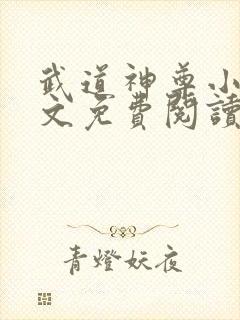 武道神尊小
文免費閱讀
青燈妖夜